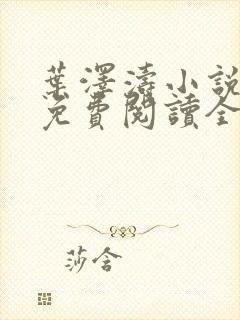 葉澤濤小說
免費閱讀全
莎含